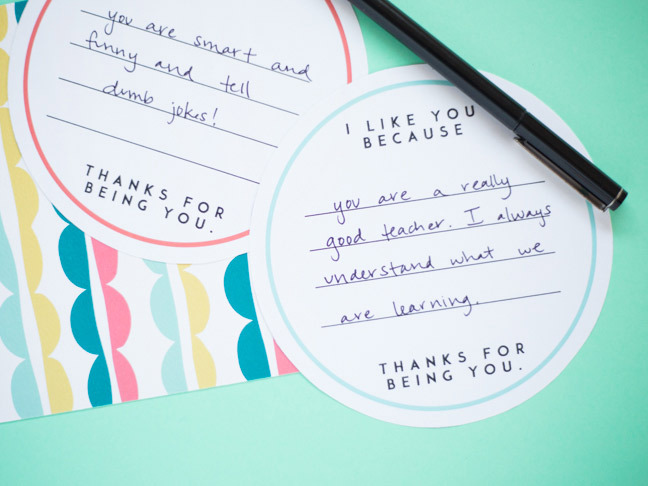 you are smart and
funny and tell
dumb jokes!
THANKS FOR
BEING YOU.
I LIKE YOU
BECAUSE
you are a really
good teacher. I always
understand what we
are learning.
THANKS FOR
BEING YOU.